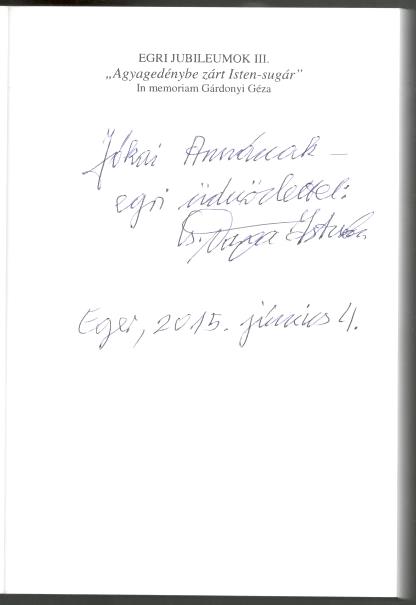 EGRI JUBILEUMOK III.
„Agyagedénybe zárt Isten-sugár”
In memoriam Gárdonyi Géza
Jókai Annának –
egri üdvözlettel:
István
Eger, 2015. június 4.